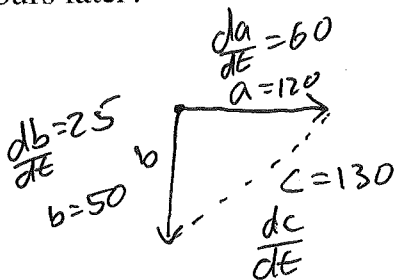 ours later?
da/dt = 60
a = 120
db/dt = 25
b
b = 50
c = 130
dc/dt